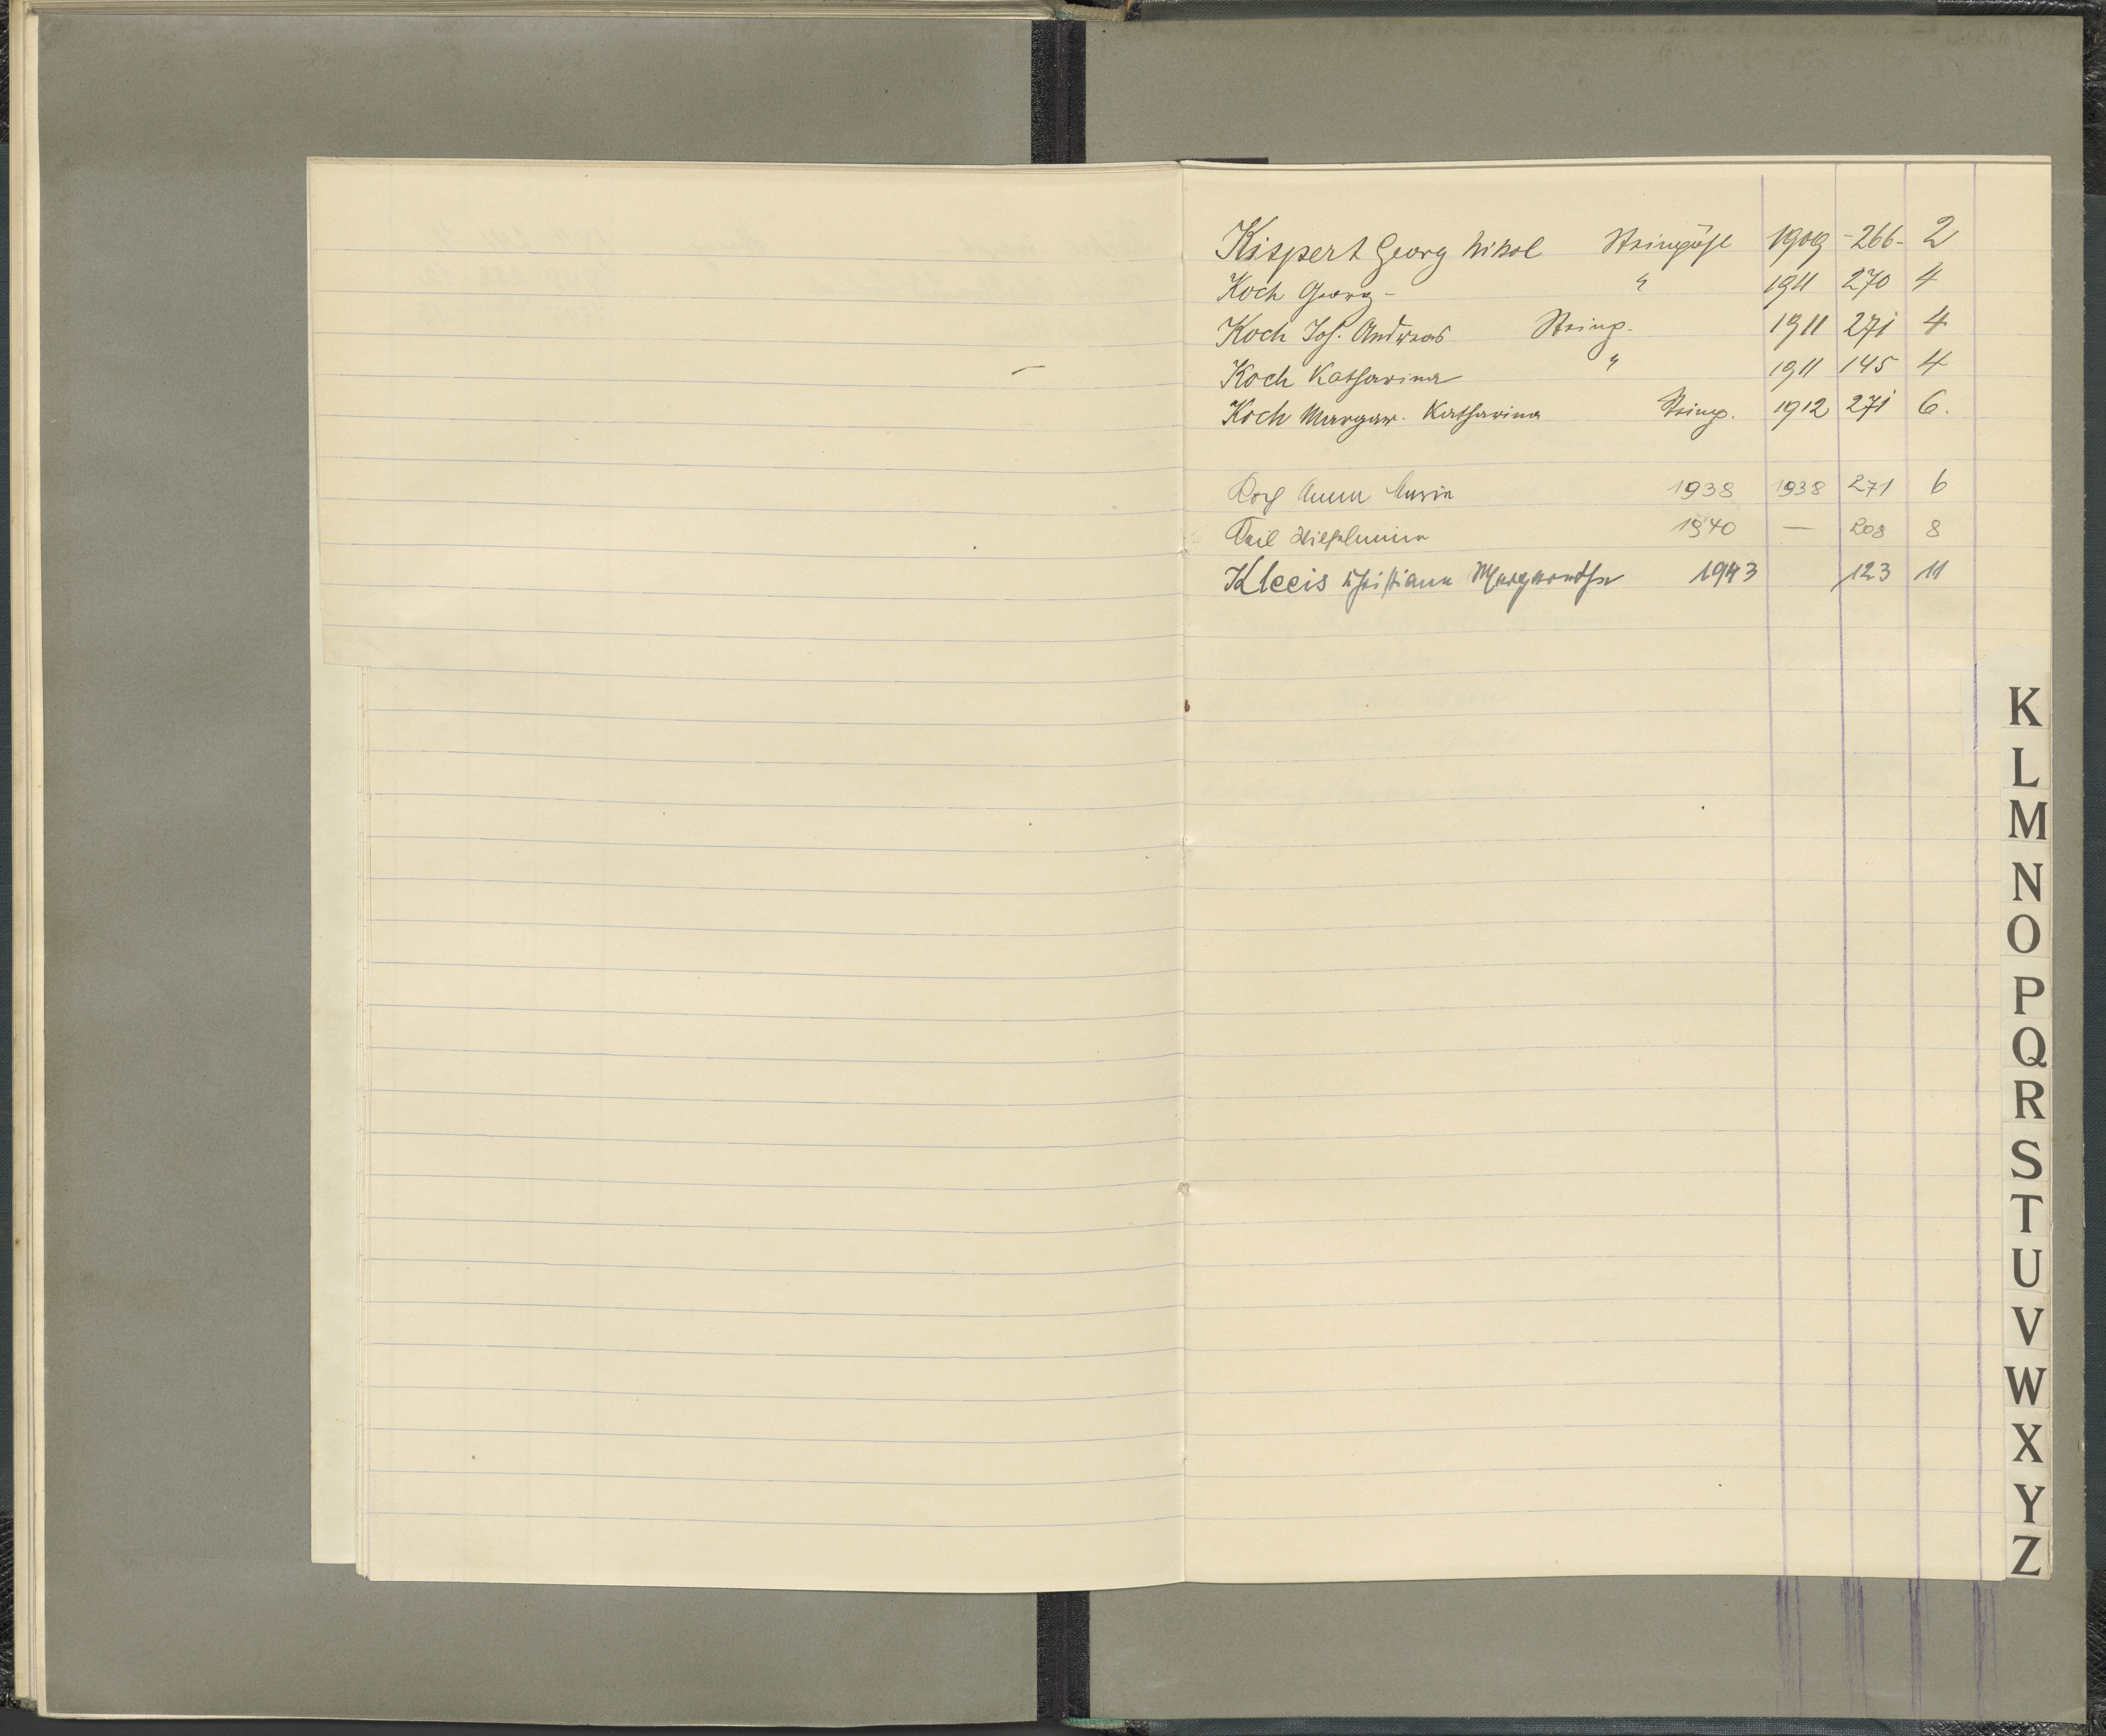 Kispert Georg Nikol Steingöße 1909 - 266 - 2
Koch Georg - " 1911 270 4
Koch Joh. Andreas Steing. 1911 271 4
Koch Katharina " 1911 145 4
Koch Margar. Katharina Steing. 1912 271 6.
Koch Anna Maria 1938 1938 271 6
Keil Wilhelmina 1940 — 208 8
Kleeis Christiana Margaretha 1943 123 11
K
L
M
N
O
P
Q
R
S
T
U
V
W
X
Y
Z